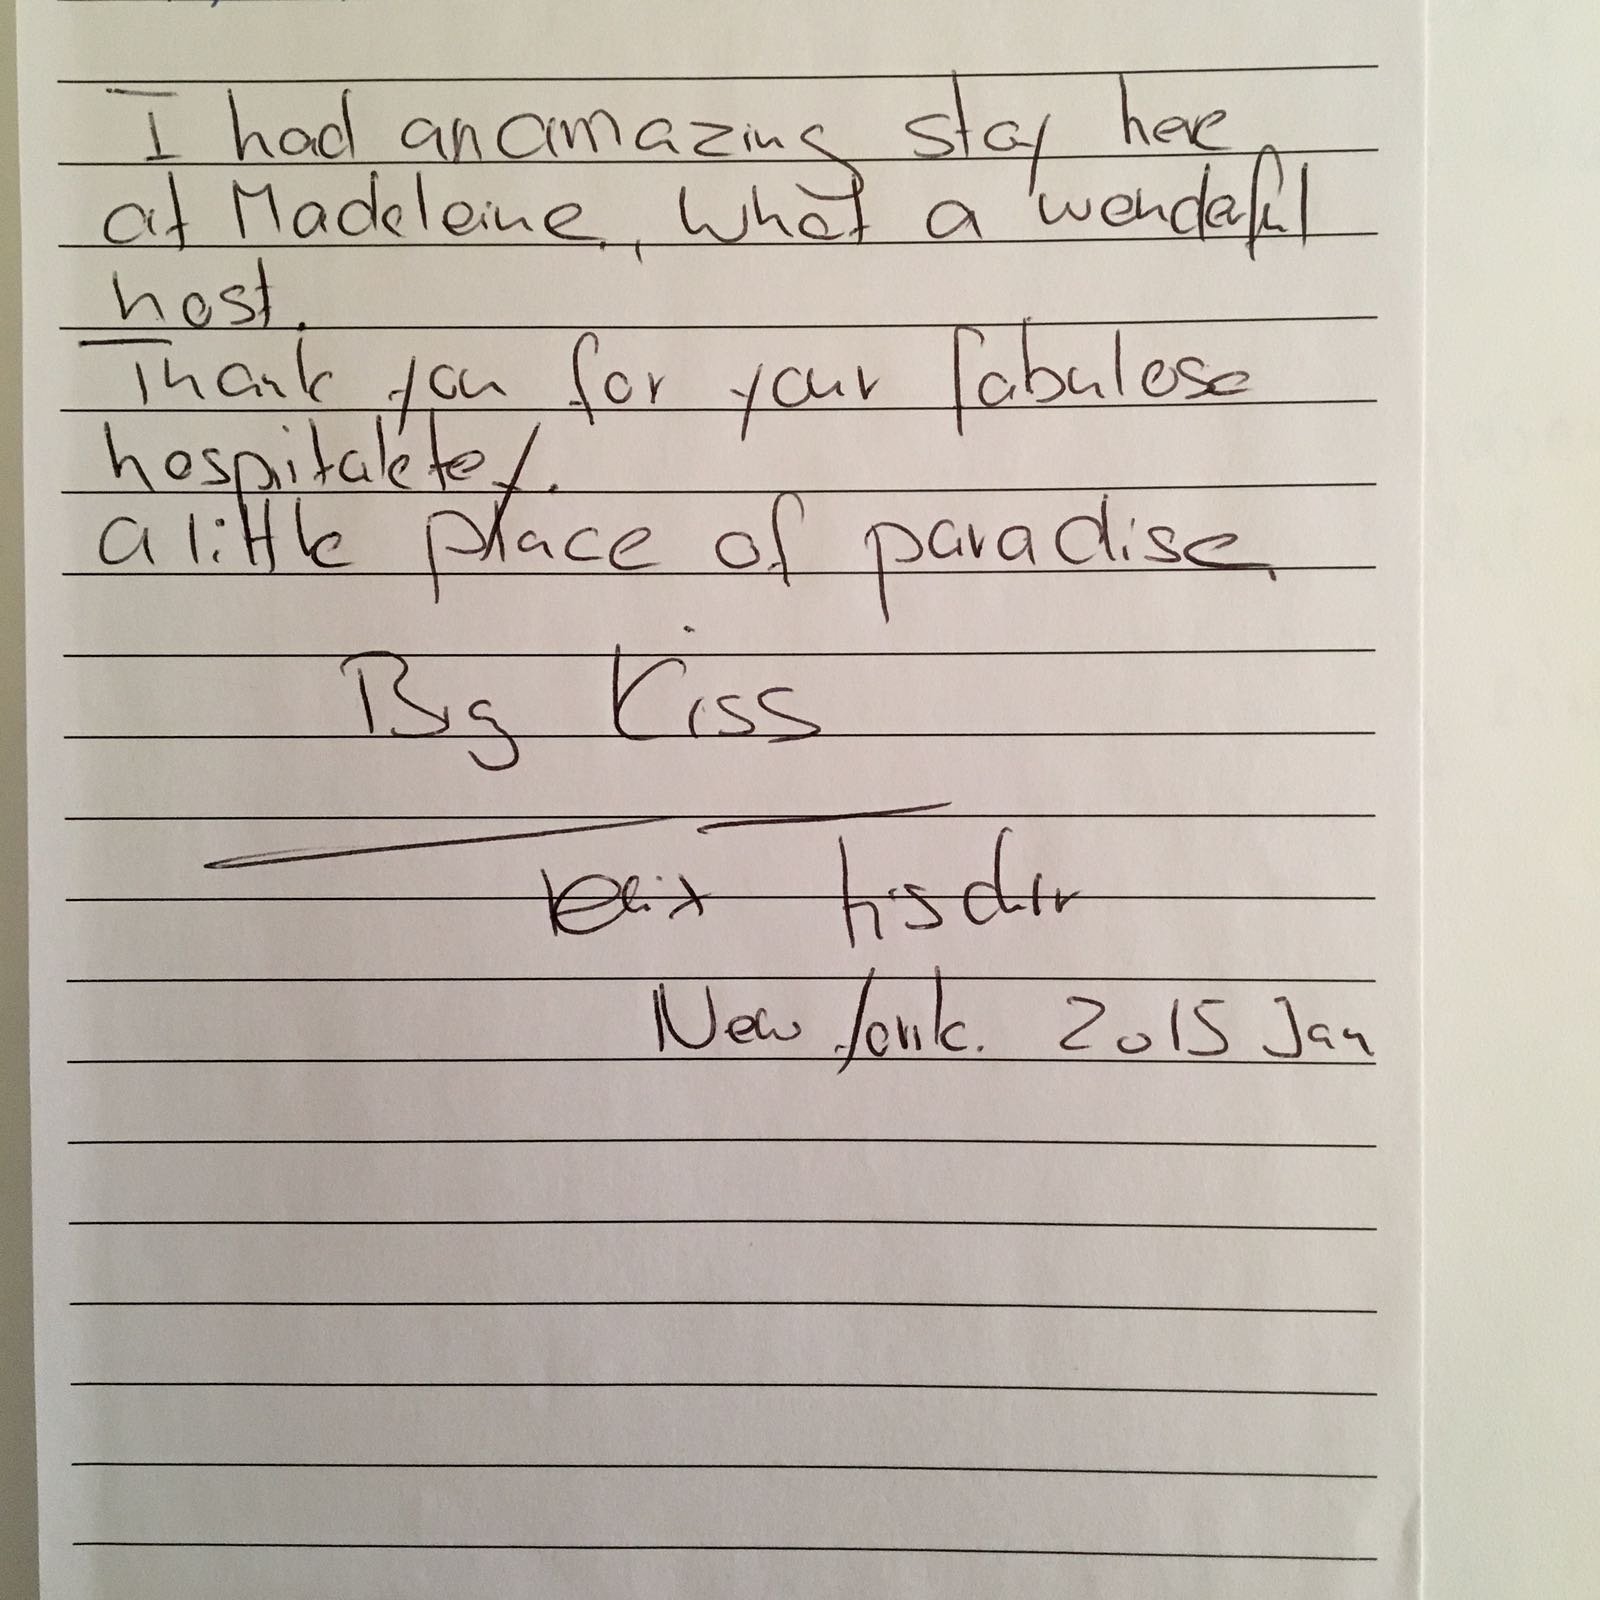 I had an amazing stay here
at Madeleine, What a wonderful
host.
Thank you for your fabulose
hospitalety.
a little place of paradise.
Big Kiss
Felix Fischer
New York. 2015 Jan